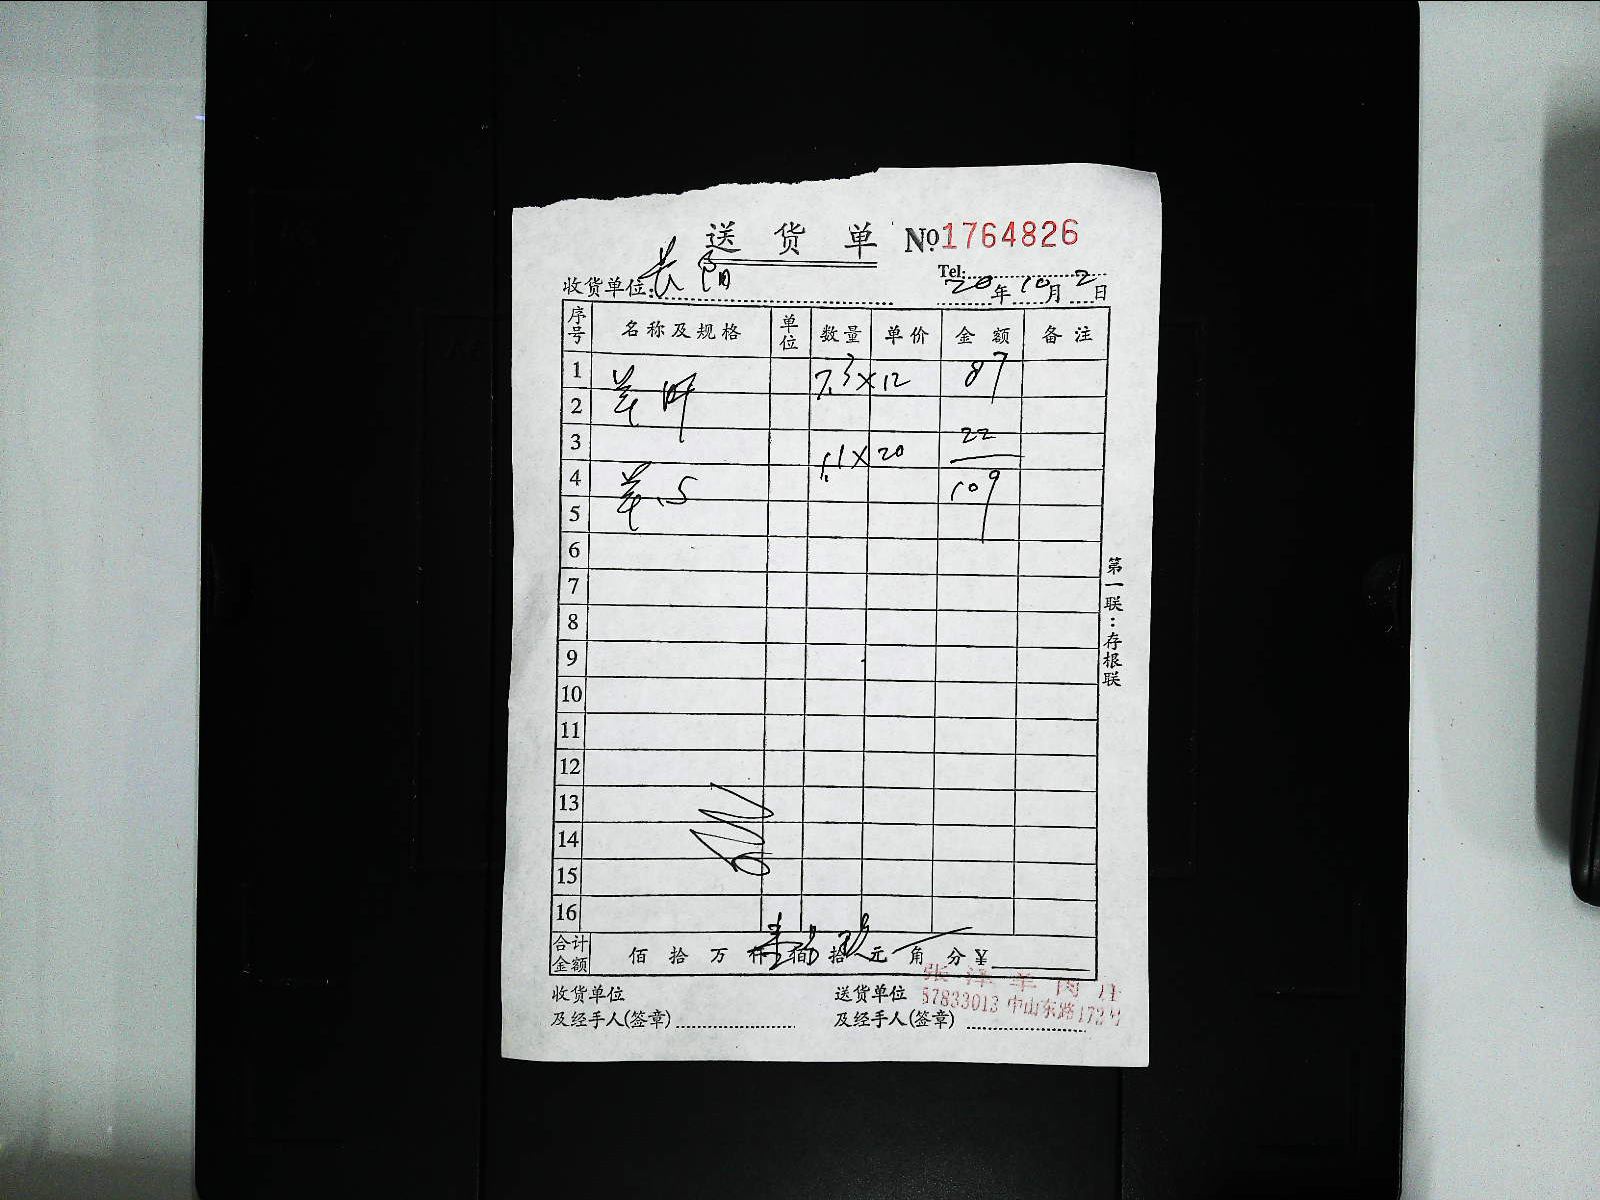 送货单 №1764826
Tel:
收货单位: 长阳 20年10月2日
序号 名称及规格 单位 数量 单价 金额 备注
1 羊肝 7.3×12 87
2
3 1.1×20 22
4 羊 109
5
6
7
8
9
10
11
12
13
14
15
16
合计金额 佰 拾 万 仟 壹 佰 拾 玖 元 角 分 ¥
收货单位 送货单位
及经手人(签章) 及经手人(签章)
张泽羊肉庄
57833013 中山东路173号
第一联:存根联